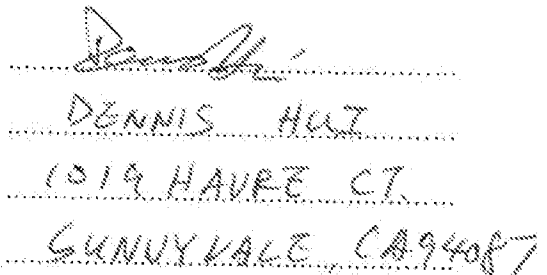 DENNIS HUI
1019 HAVRE CT.
SUNNYVALE, CA94087